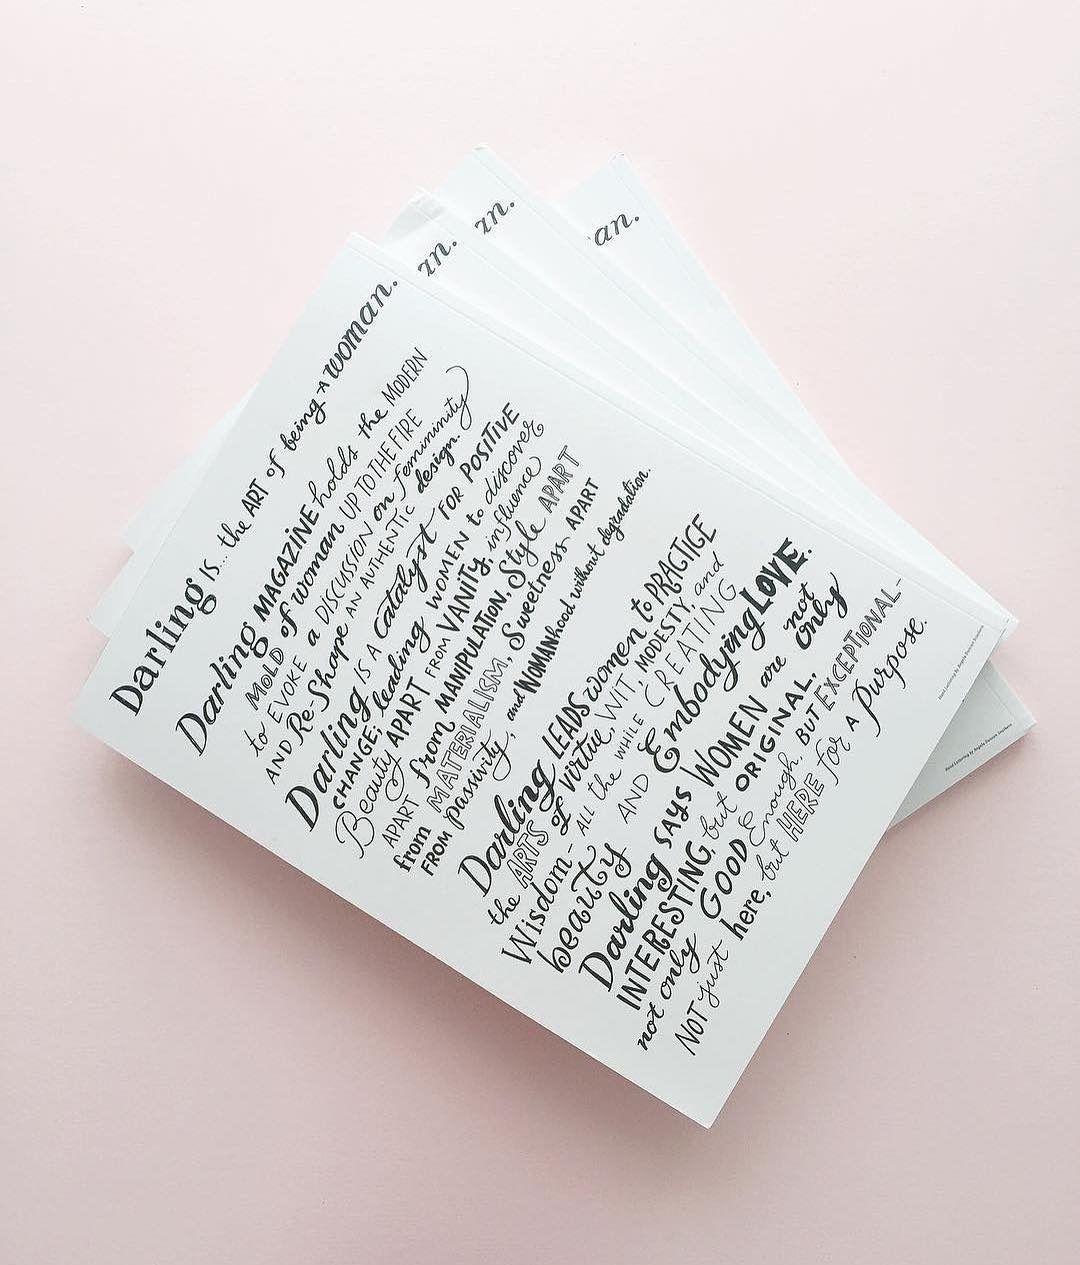 Darling is... the ART of being A woman.
Darling MAGAZINE holds the MODERN
MOLD of woman UP TO THE FIRE
to EVOKE a DISCUSSION on femininity
AND Re-Shape AN AUTHENTIC design.
Darling IS A catalyst FOR POSITIVE
CHANGE; leading WOMEN to discover
Beauty APART FROM VANITY, influence
APART from MANIPULATION, Style APART
from MATERIALISM, Sweetness APART
FROM passivity, and WOMANhood without degradation.
Darling LEADS women to PRACTICE
the ARTS of virtue, WIT, MODESTY, and
Wisdom- All the WHILE CREATING
beauty AND Embodying LOVE.
Darling SAYS WOMEN are not only
INTERESTING, but ORIGINAL,
not only GOOD Enough, BUT EXCEPTIONAL-
NOT just here, but HERE for a Purpose.
an.
an.
an.